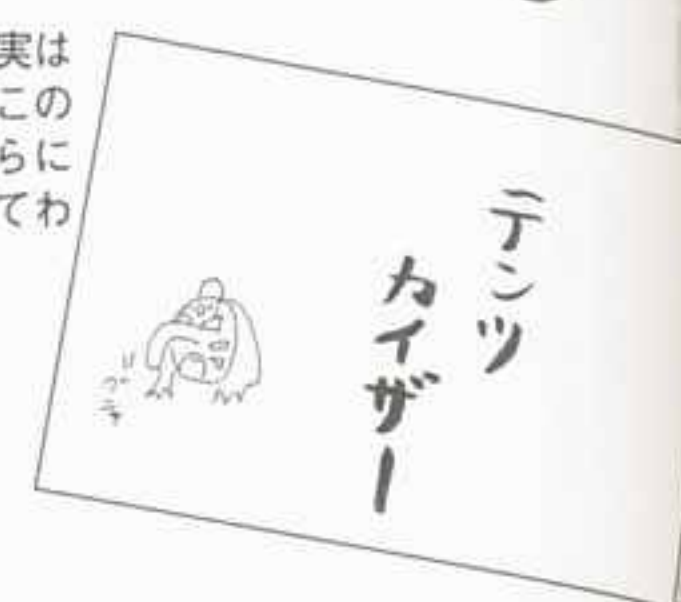 実は
この
らに
てわ
テンツ
カイザー